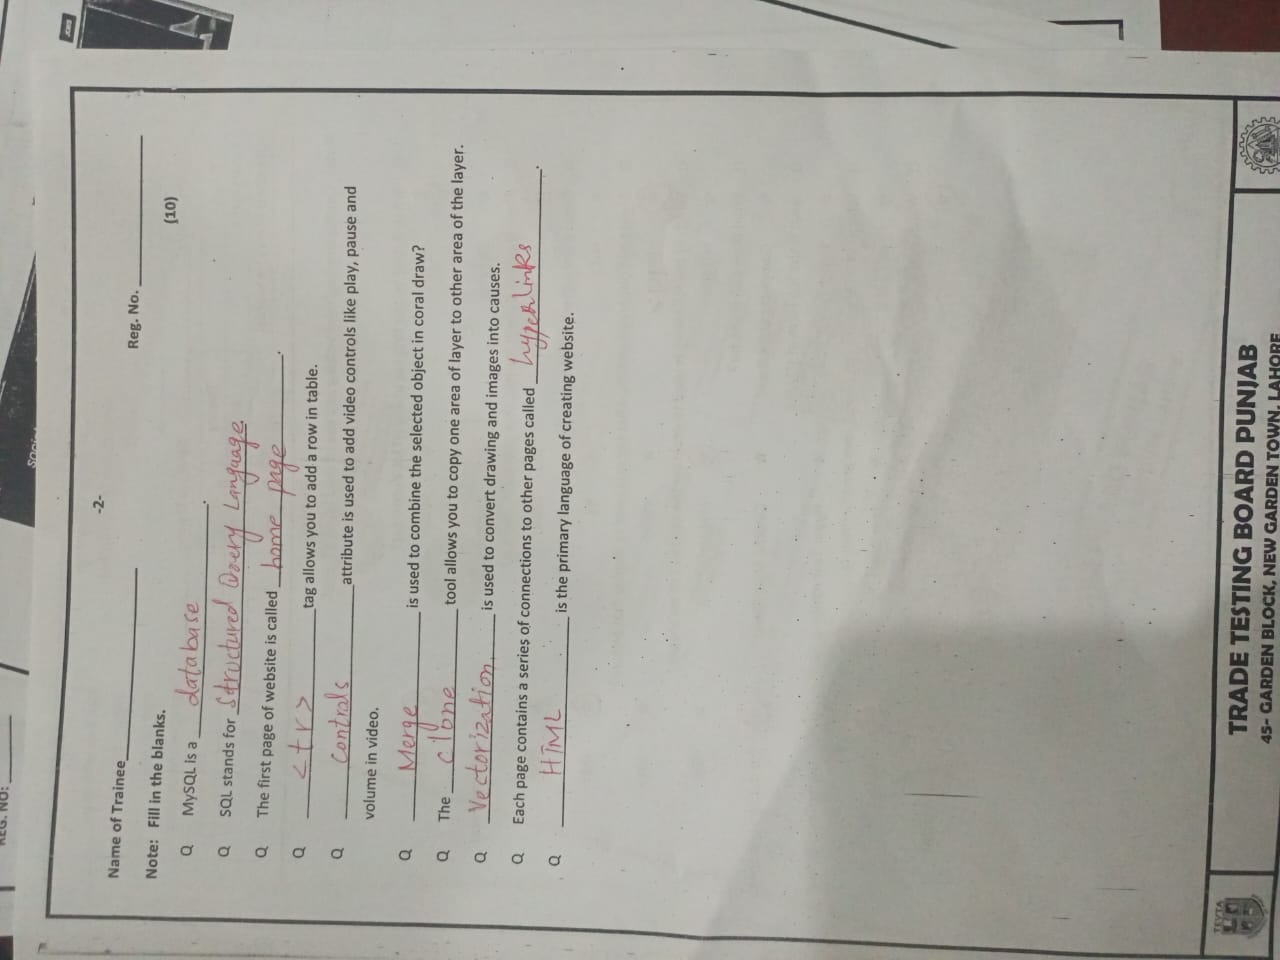 -2-
Name of Trainee
Reg. No.
Note: Fill in the blanks.
(10)
Q MySQL is a database.
Q SQL stands for Structured Query Language.
Q The first page of website is called home page.
Q <tr> tag allows you to add a row in table.
Q controls attribute is used to add video controls like play, pause and
volume in video.
Q Merge is used to combine the selected object in coral draw?
Q The clone tool allows you to copy one area of layer to other area of the layer.
Q Vectorization is used to convert drawing and images into causes.
Q Each page contains a series of connections to other pages called hyperlinks.
Q HTML is the primary language of creating website.
TEVTA
TRADE TESTING BOARD PUNJAB
45- GARDEN BLOCK, NEW GARDEN TOWN, LAHORE
REG. NO: